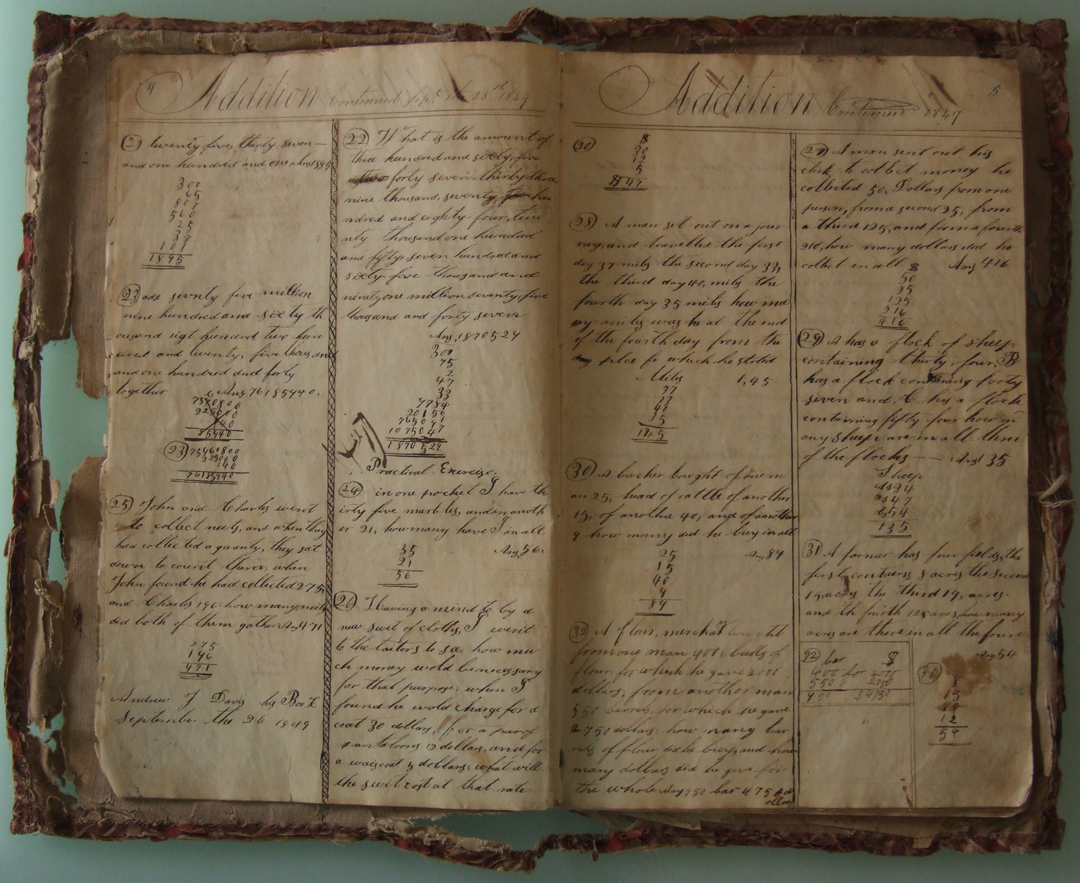 4 Addition Continued Sept the 26th 1849
21 twenty five, thirty seven
and one hundred and one Ans 1895
300
65
807
560
25
37
101
1895
23 add seventy five million
nine hundred and sixty th
ousand eight hundred two hun
and twenty, five thousand
and one hundred and forty
together Ans 7618594 0.
15940
23 75960800
225000
140
76185940
25 John and Charles went
to collect nuts, and when they
had collected a quanty, they set
down to count them; when
John found he had collected 275
and Charles 196 how many nuts
did both of them gather Ans 471
275
196
471
Andrew J Davis his Book
September the 26 1849
22 What is the amount of
three hundred and sixty, five
forty seven thirty three
nine thousand, seventy hun
ndred and eighty four, twe
nty thousand one hundred
and fifty seven hundred and
sixty five thousand and
ninety one million seventy, five
thousand and forty seven
Ans, 1870527
300
75
2
47
33
20159
765091
1075047
1870527
Practical Exercise,
24 in one pocket I have th
irty five marbles, and in anoth
er 21, how many have I in all
Ans 56.
35
21
56
26 Having a mind to by a
new suit of cloths, I went
to the tailors to se, how mu
ch money wold be necessary
for that purpose; when I
found he wold charge for a
coat 30 dollars, for a pare of
pantaloons 12 dollars, and for
a waiscoat 5 dollars; what will
the suit cost at that rate
Addition Continued 1849 5
26 $
30
12
5
$ 47
28 A man set out on a jour
ney, and travelled the first
day 37 mils the second day 33,
the third day 40, mils the
fourth day 35 mils how ma
ny miles was he at the end
of the fourth day from the
place from which he stated
Miles 1,45
37
33
40
35
145
30 A bucher bought of one m
an 25, head of cattle of another
15, of another 40, and of another
9 how maney did he buy in all
Ans 89
25
15
40
9
89
32 A flour, merchat bought
from one man 400, barls of
flour, for which he gave 2000
dollars, from another man
550 barres, for which he gave
2750 dollars; how many bar
rels of flour did he buy, and how
many dollars did he give for
the whole Ans 950 bar 4750
dollars
27 A man sent out his
clerk to collect money he
collected 50, Dollars from one
person, from a second 25, from
a third 125, and from a fourth
216, how many dollars did he
collect in all Ans 416
$
50
25
125
216
416
29 A has a flock of sheep
containing thirty four, B
has a flock containing forty
seven and, C has a flock
containing fifty four how m
any sheep are in all three
of the flocks Ans 135
Sheep
A 34
B 47
C 54
135
31 A farmer has four fields, the
first contains 8 acres the second
15 acres the third 19, acres
and the fourth 12 acres, how many
acres are there in all the four
Ans 54
32 bar $
400 for 2000
550 2750
950 4750
31
8
15
19
12
54